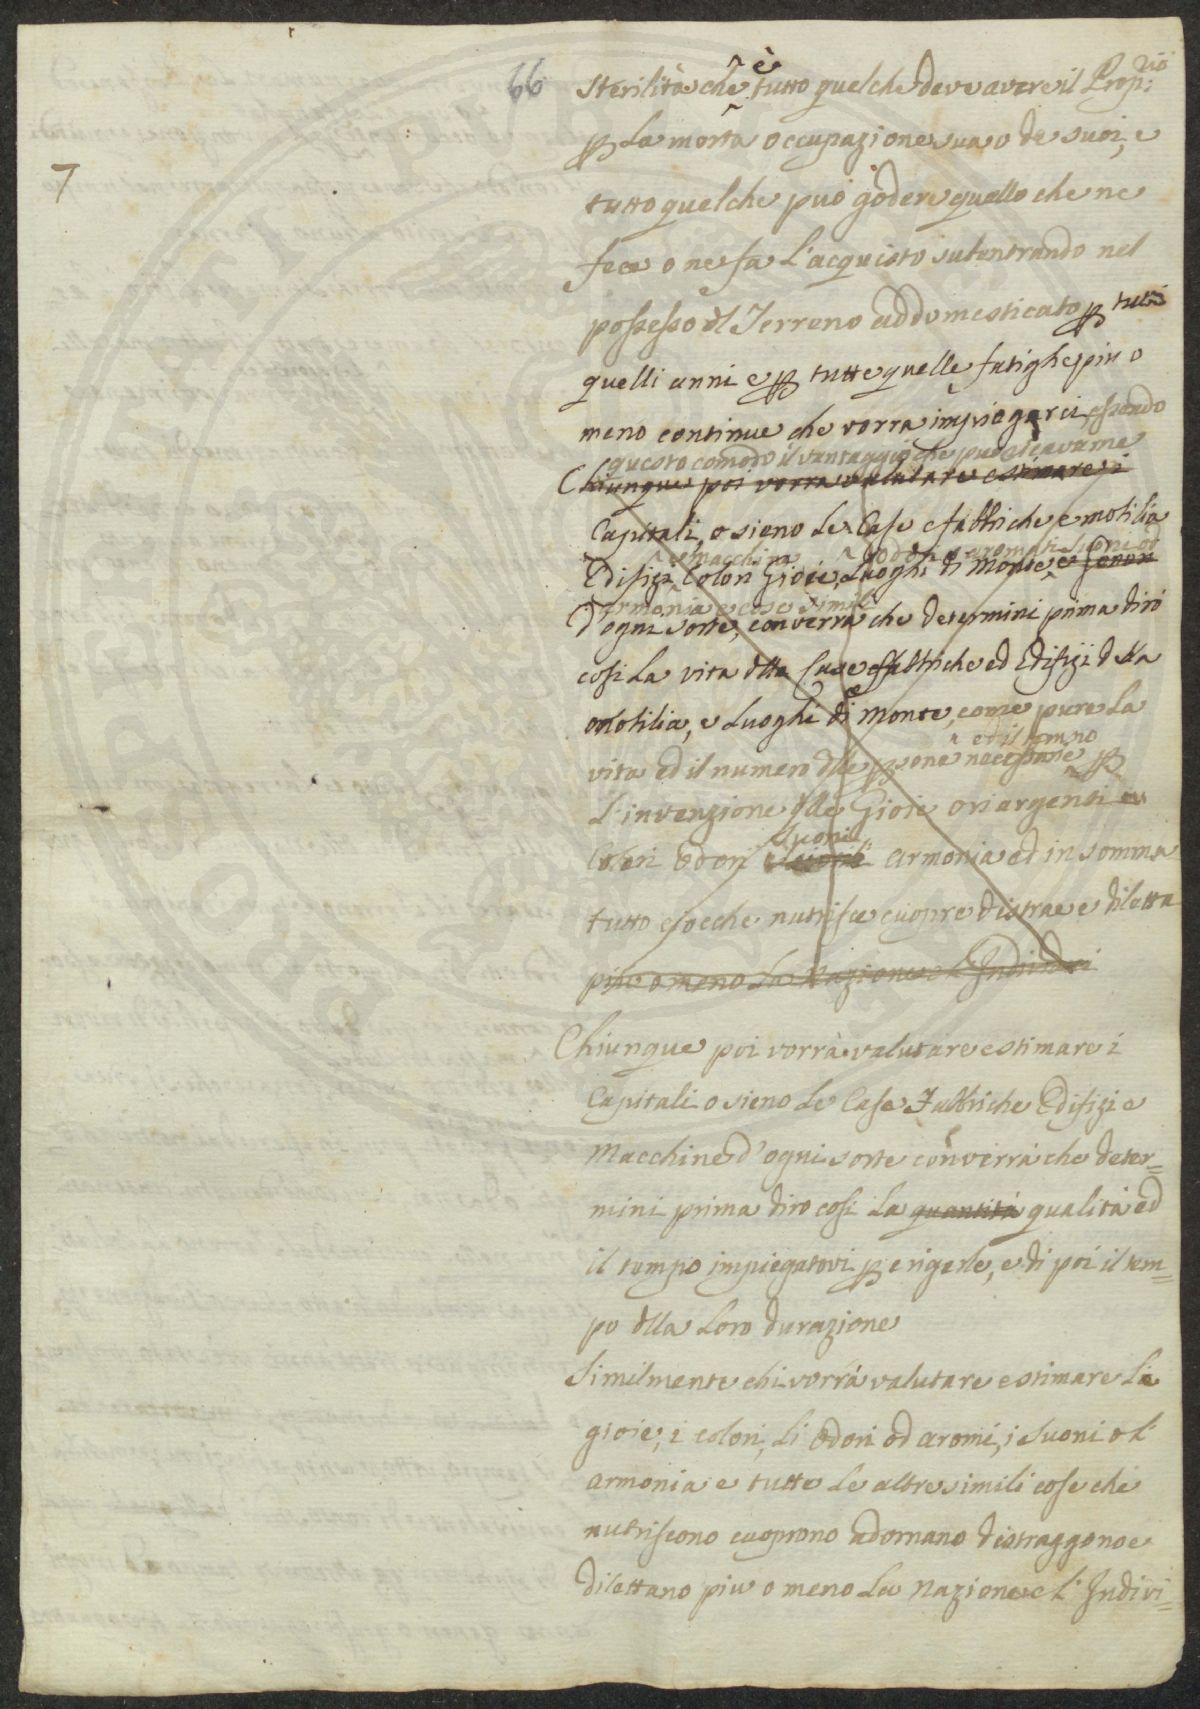 66
7
sterilità che è tutto quelche deve avere il Prop:rio
p la morta occupazione sua o de suoi, e
tutto quelche può godere quello che ne
fece o ne fa l'acquisto subentrando nel
possesso dl Terreno addomesticato p tutti
quelli anni e p tutte quelle fatighe piu o
meno continue che vorra impiegarci, essendo
questo comodo il vantaggio che può ricavarne
Chiunque poi vorra valutare e stimare i
Capitali, o sieno le Case e fabbriche e mobilia
e Macchine odori aromati suoni ed
Edifizi Colori Gioie, Luoghi di Monte, e
armonia e cose simili
d'ogni sorte, converrà che determini prima dirò
cosi la vita dlle Case e fabbriche ed Edifizi della
mobilia, e Luoghi di Monte, come pure la
ed il tempo
vita ed il numero dlle psone necessarie p
l'invenzione dlle Gioie ori argenti
suoni
Colori Odori armonia ed in somma
tutto ciocche nutrisce cuopre distrae e diletta
piu o meno la Nazione e l'Individui
Chiunque poi vorrà valutare e stimare i
Capitali o sieno le Case Fabbriche Edifizi e
Macchine d'ogni sorte converrà che deter=
mini prima dirò cosi la quantità qualità ed
il tempo impiegatovi p erigerle, e di poi il tem=
po dlla loro durazione
Similmente chi vorrà valutare e stimare le
gioie, i colori, li Odori ed aromi, i suoni o l'
armonia e tutte le altre simili cose che
nutriscono cuoprono adornano distraggono e
dilettano piu o meno la Nazione e l'Indivi=